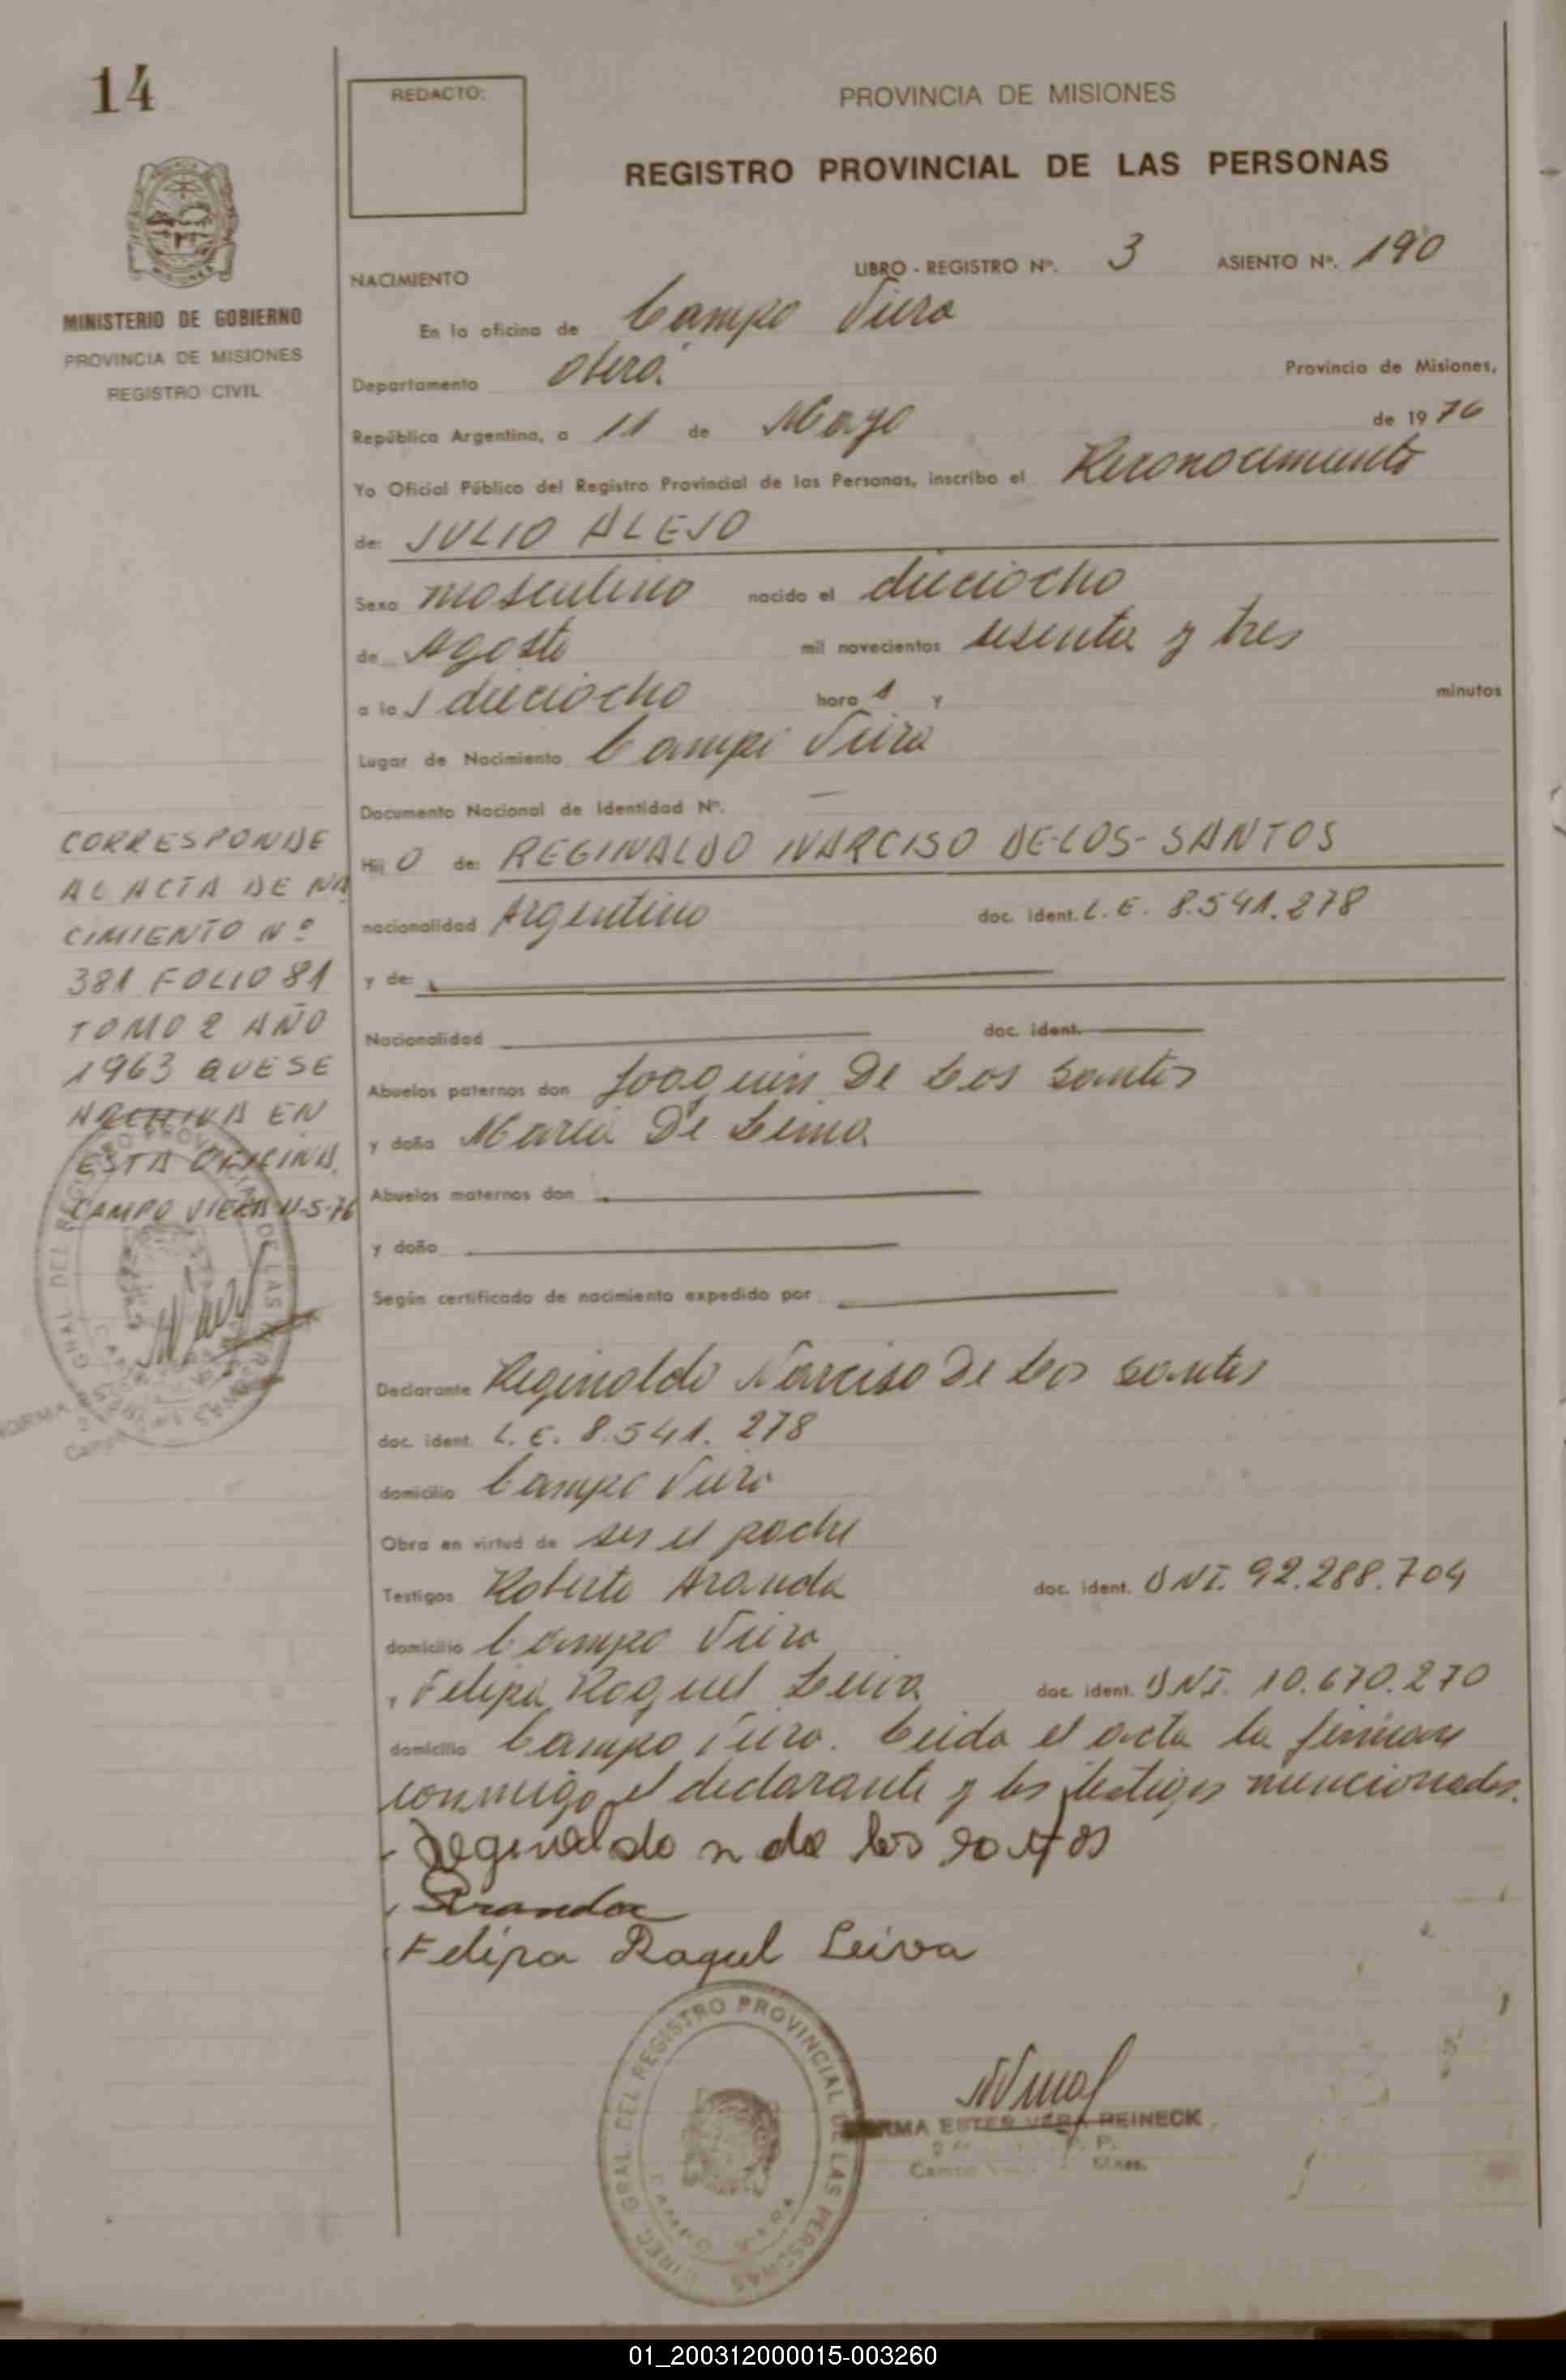 14
REDACTO:
PROVINCIA DE MISIONES
REGISTRO PROVINCIAL DE LAS PERSONAS
MINISTERIO DE GOBIERNO
PROVINCIA DE MISIONES
REGISTRO CIVIL
NACIMIENTO LIBRO - REGISTRO Nº. 3 ASIENTO Nº. 190
En la oficina de Campo Viera
Departamento Oberá. Provincia de Misiones,
República Argentina, a 11 de Mayo de 1976
Yo Oficial Público del Registro Provincial de las Personas, inscribo el Reconocimiento
de: JULIO ALEJO
Sexo masculino nacido el dieciocho
de Agosto mil novecientos sesenta y tres
a las dieciocho hora s y minutos
Lugar de Nacimiento Campo Viera
Documento Nacional de Identidad Nº. —
Hijo de: REGINALDO NARCISO DE-LOS-SANTOS
nacionalidad Argentino doc. ident. L. E. 8.541.278
y de:
Nacionalidad doc. ident.
Abuelos paternos don Joaquin De Los Santos
y doña Maria De Lima
Abuelos maternos don
y doña
Según certificado de nacimiento expedido por
CORRESPONDE
AL ACTA DE NA
CIMIENTO Nº
381 FOLIO 81
TOMO 2 AÑO
1963 QUE SE
ARCHIVA EN
ESTA OFICINA.
CAMPO VIERA 11-5-76
Declarante Reginaldo Narciso De Los Santos
doc. ident. L. E. 8.541.278
domicilio Campo Viera
Obra en virtud de ser el padre
Testigos Roberto Aranda doc. ident. DNI. 92.288.704
domicilio Campo Viera
y Felipa Raquel Leiva doc. ident. DNI. 10.670.270
domicilio Campo Viera. Leida el acta la firman
conmigo el declarante y los testigos mencionados.
Reginaldo n de los santos
Aranda
Felipa Raquel Leiva
DIREC. GRAL DEL REGISTRO PROVINCIAL DE LAS PERSONAS
CAMPO VIERA
NORMA ESTER VERA REINECK
01_200312000015-003260